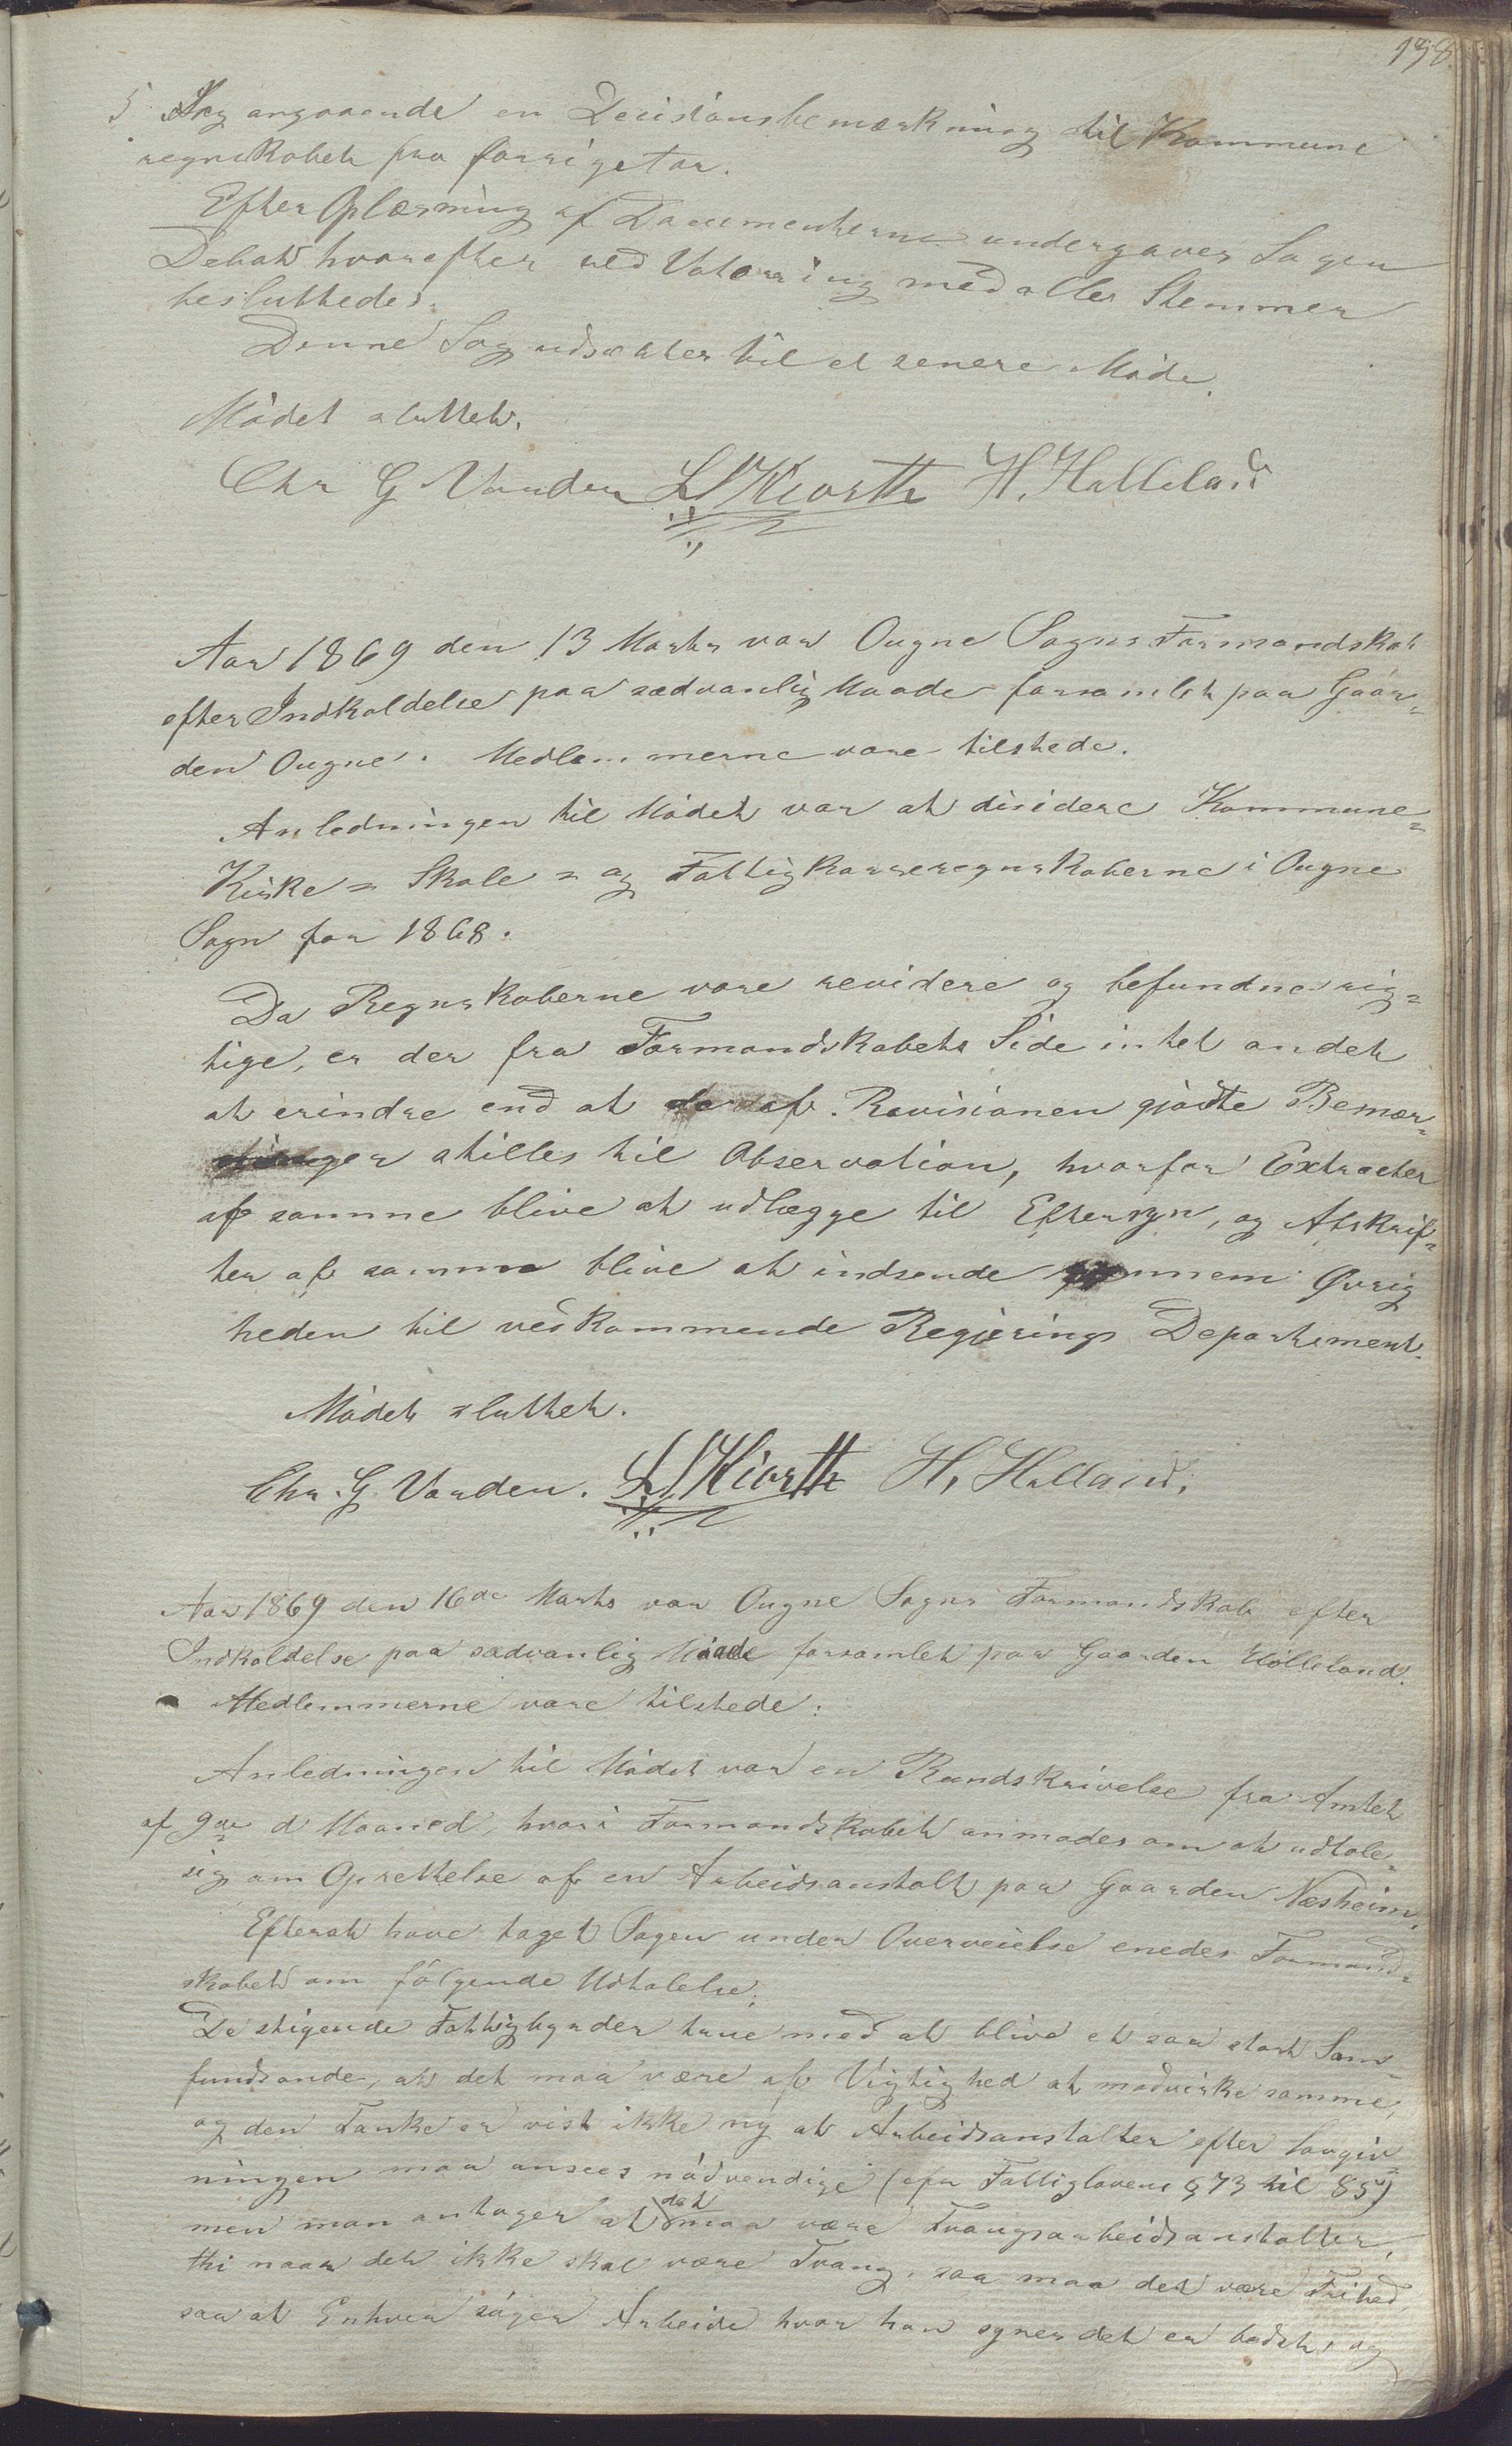 198
5 Sag angaaende en Decisionsbemærkning til Kommune
regnskabet fra forrigetor.
Efter Oplæsning af Documenterne undergaves Sagen
Debat hvorefter ved Votering med alles Stemmer
besluttedes.
Denne Sag udsættes til et senere Møde.
Mødet sluttet.
Chr G Varden LS Kiorth H. Halleland
Aar 1869 den 13 Marts var Ougne Sogns Formandskab
efter Indkaldelse paa sædvanlig Maade forsamlet paa Gaar=
den Ougne. Medlemmerne vare tilstede.
Anledningen til Mødet var at disidere Kommune=
Kirke= Skole= og Fattigkasseregnskaberne i Ougne
Sogn for 1868.
Da Regnskaberne vare revidere og befundne rig=
tige, er der fra Formandskabets Side intet andet
at erindre end at de af Revisionen gjødte Bemær=
kninger stilles til Observation, hvorfor Extracter
af samme blive at udlægge til Eftersyn, og Afskrif=
ter af samme blive at indsende gjennem Øvrig
heden til vedkommende Regjerings Departement.
Mødet sluttet.
Chr. G. Varden. LS Kiorth H. Halland.
Aar 1869 den 16de Marts var Ougne Sogns Formandskab efter
Indkaldelse paa sædvanlig Maade forsamlet paa Gaarden Hølleland.
Medlemmerne vare tilstede:
Anledningen til Mødet var en Rundskrivelse fra Amtet
af 9de d Maaned, hvori Formandskabet anmodes om at udtale=
sig om Oprettelse af en Arbeidsanstalt paa Gaarden Næsheim.
Efterat have taget Sagen under Overveielse enedes Formand=
skabet om følgende Udtalelse:
De stigende Fattigbyrder true med at blive et saa stort Sam=
fundsonde, at det maa være af Vigtighed at modvirke samme,
og den Tanke er vist ikke ny at Arbeidsanstalter efter Lovgiv=
ningen maa ansees nødvendige (cfr Fattiglovens § 73 til 85)
men man antager at det maa være Tvangsarbeidsanstalter,
thi naar det ikke skal være Tvang, saa maa det være Frihed,
saa at Enhver søger Arbeide hvor han synes det er bedst, og